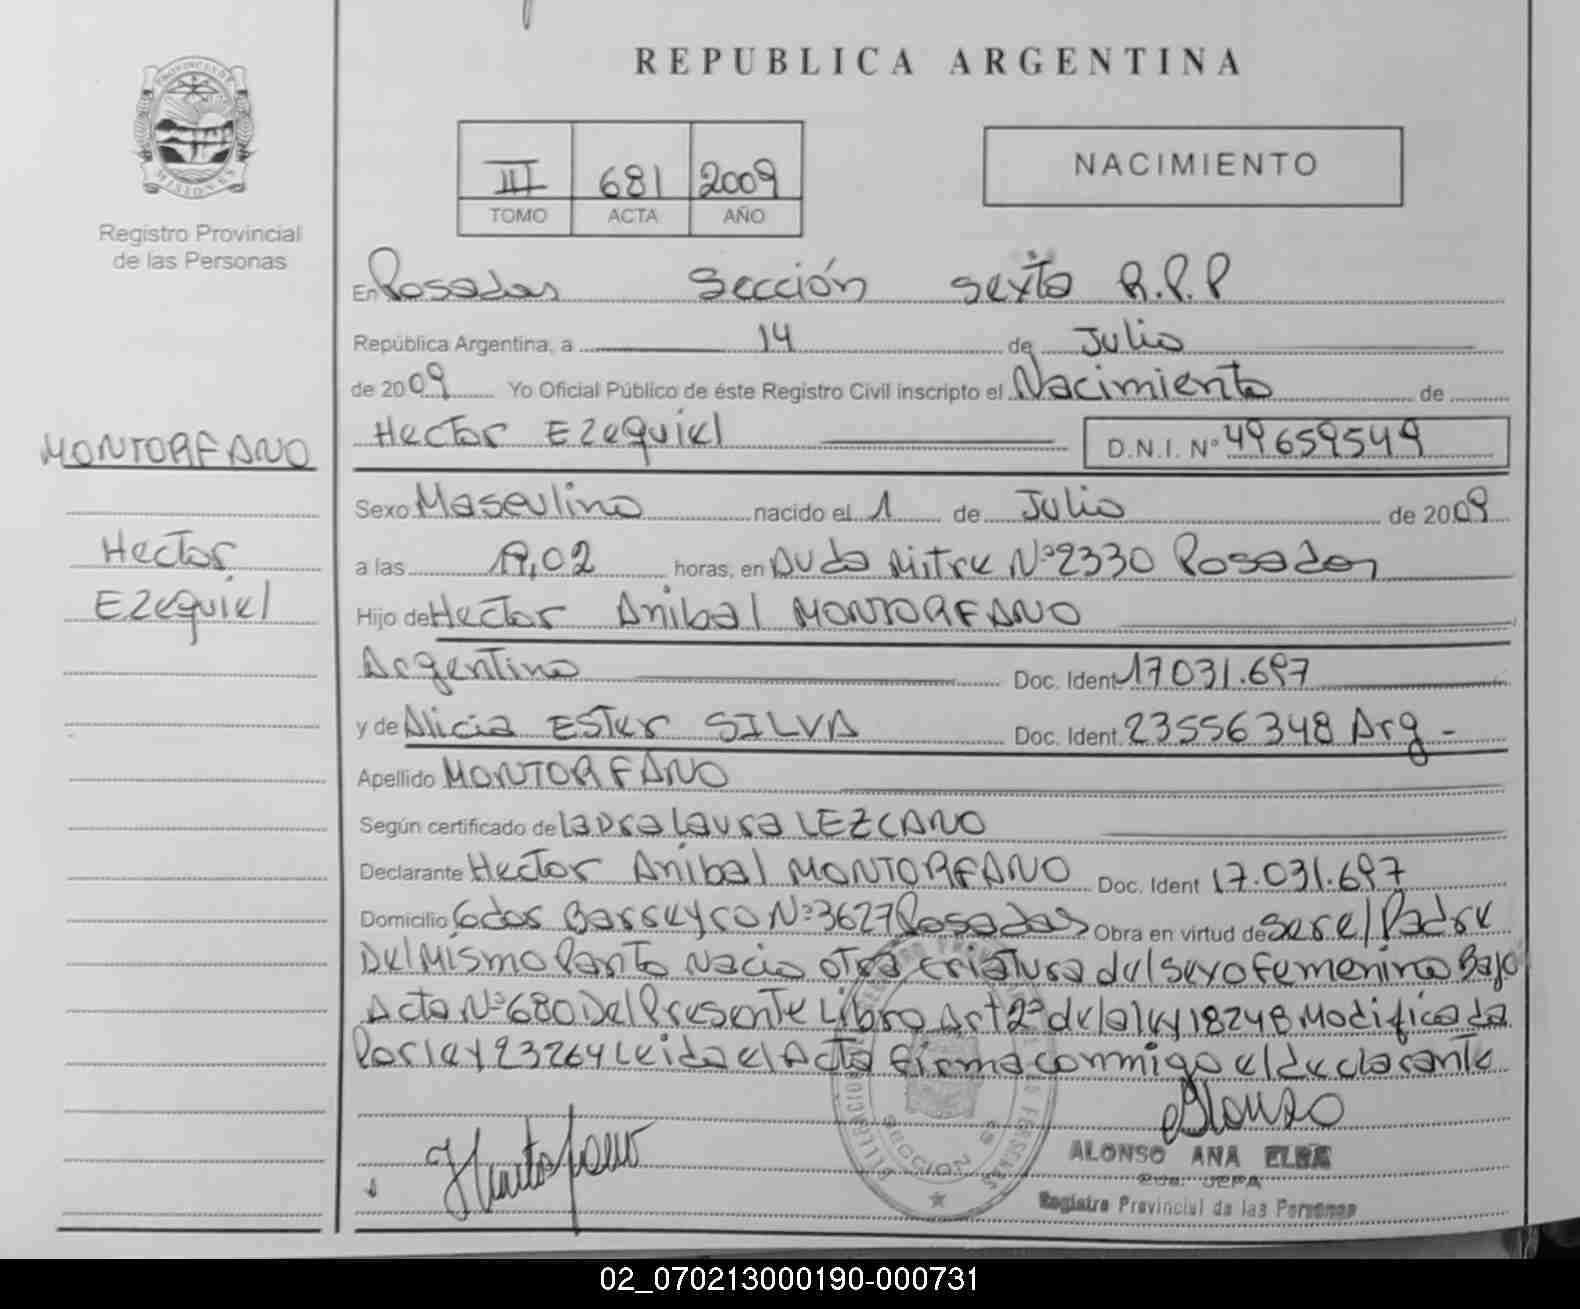 REPUBLICA ARGENTINA
PROVINCIA DE MISIONES
Registro Provincial
de las Personas
III 681 2009
TOMO ACTA AÑO
NACIMIENTO
En Posadas Sección sexta R.P.P
República Argentina, a 14 de Julio
de 2009 Yo Oficial Público de éste Registro Civil inscripto el Nacimiento de
Hector Ezequiel D.N.I. Nº 49659549
MONTORFANO
Hector
Ezequiel
Sexo Masculino nacido el 1 de Julio de 2009
a las 19,02 horas, en Avda Mitre Nº 2330 Posadas
Hijo de Hector Anibal MONTORFANO
Argentino Doc. Ident. 17031.697
y de Alicia Ester SILVA Doc. Ident. 23556348 Arg -
Apellido MONTORFANO
Según certificado de la Dra Laura LEZCANO
Declarante Hector Anibal MONTORFANO Doc. Ident 17.031.697
Domicilio Gdor Barreyro Nº 3627 Posadas Obra en virtud de ser el Padre
Del Mismo Parto Nacio otra criatura del sexo Femenino Bajo
Acta Nº 680 Del Presente Libro Art 2º de la ley 18248 Modificada
Por ley 23264 Leida el Acta firma conmigo el declarante
Alonso
ALONSO ANA ELBA
JEFA
Registro Provincial de las Personas
SECCION 6ª
02_070213000190-000731